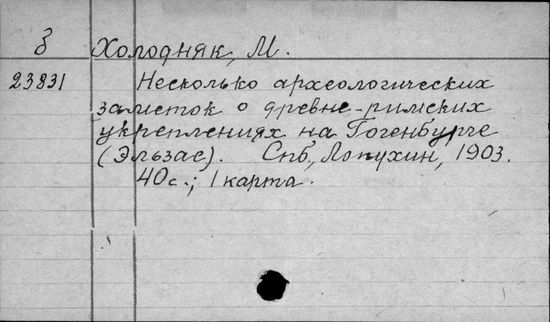 З Холодняк, М.
23831 Несколько археологических
заметок о древне-римских
укреплениях на Гогенбурге
(Эльзас). Спб, Лопухин, 1903.
40с.; 1 карта.